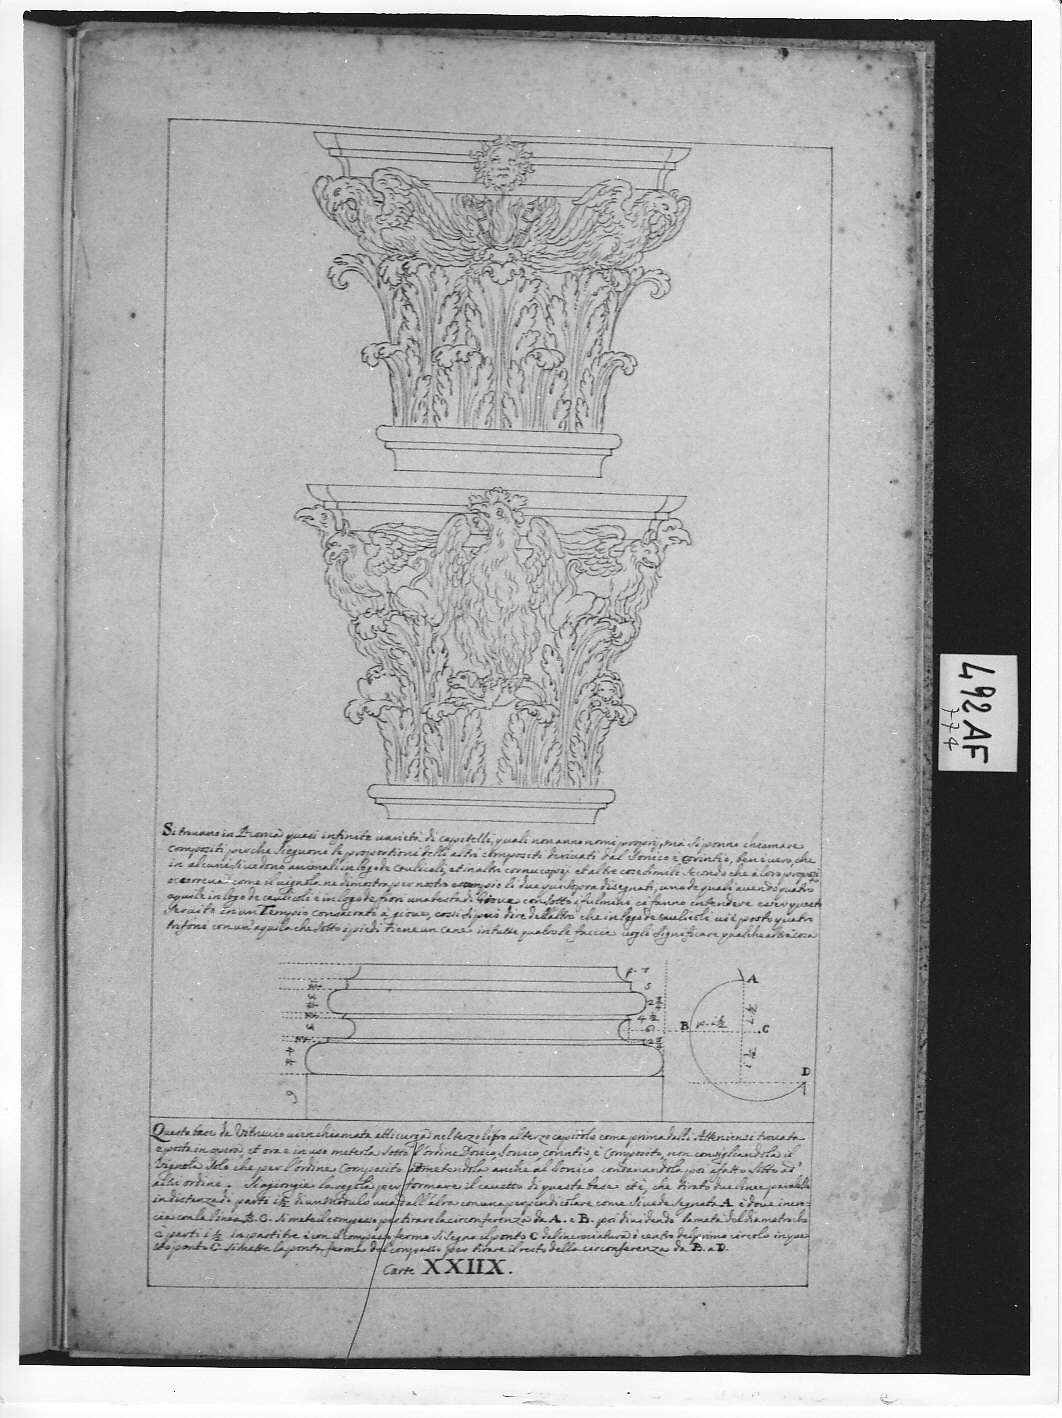 Si truano in Roma quasi infinite varietà di capitelli, quali non anno nomi proprij, ma si ponno chiamare
compositi perche sieguono le proportioni delli altri compositi derivati dal Ionico e Corintio, ben e vero, che
in alcuni si vedono animali in logo de Caulicoli, et in altri cornucopij et altre cose simili secondo che à loro propositi
occorreva come il vignola ne dimostra per nostro esempio li due qui sopra disegnati, uno de quali avendo quatro
aquile in logo de caulicoli e in logo de fiori una testa di Giove con sotto i fulmini ci fanno intendere esser questo
servito in un Tempio consacrato à giove, cossi si può dire dell'altro che in logo de caulicoli vi è posto quatro
Grifoni con un'aquila che sotto i piedi tiene un cane in tutte quatro le faccie vogli significare qualche altra cosa
p. 7
5
2 3/4
4 1/2
6
A
B
p. 1 1/2
C
D
Questa base da Vitruvio vien chiamata atticurga nel terzo libro al terzo capitolo come prima delli Atteniensi trovata
e posta in opera et ora e in uso meterla sotto l'ordine Dorico Ionico, corintio, e Composito, non consigliandola il
Vignola solo che per l'ordine Composito admetendola anche al Ionico condanandola poi afatto sotto ad
altri ordine. Si agiongie la regola per formare il cavetto di questa base et è, che tirato due linee paralelle
in distanza di parte 1 1/2 di un Modulo una dall'altra con una perpendicolare come si vede segnata A e dove incro-
cia con la linea B. C. si mete il compasso per tirare la circonferenza da A. e B. poi dividendo la metà del diametro che
è parti 1 1/2 in parti tre e con il compasso fermo si segna il ponto C del incrociatura e centro del primo circolo in que
sto ponto C. si mette la ponta ferma del compasso per tirare il resto della circonferenza da B. a D.
Carte XXIIX.
492 AF
774